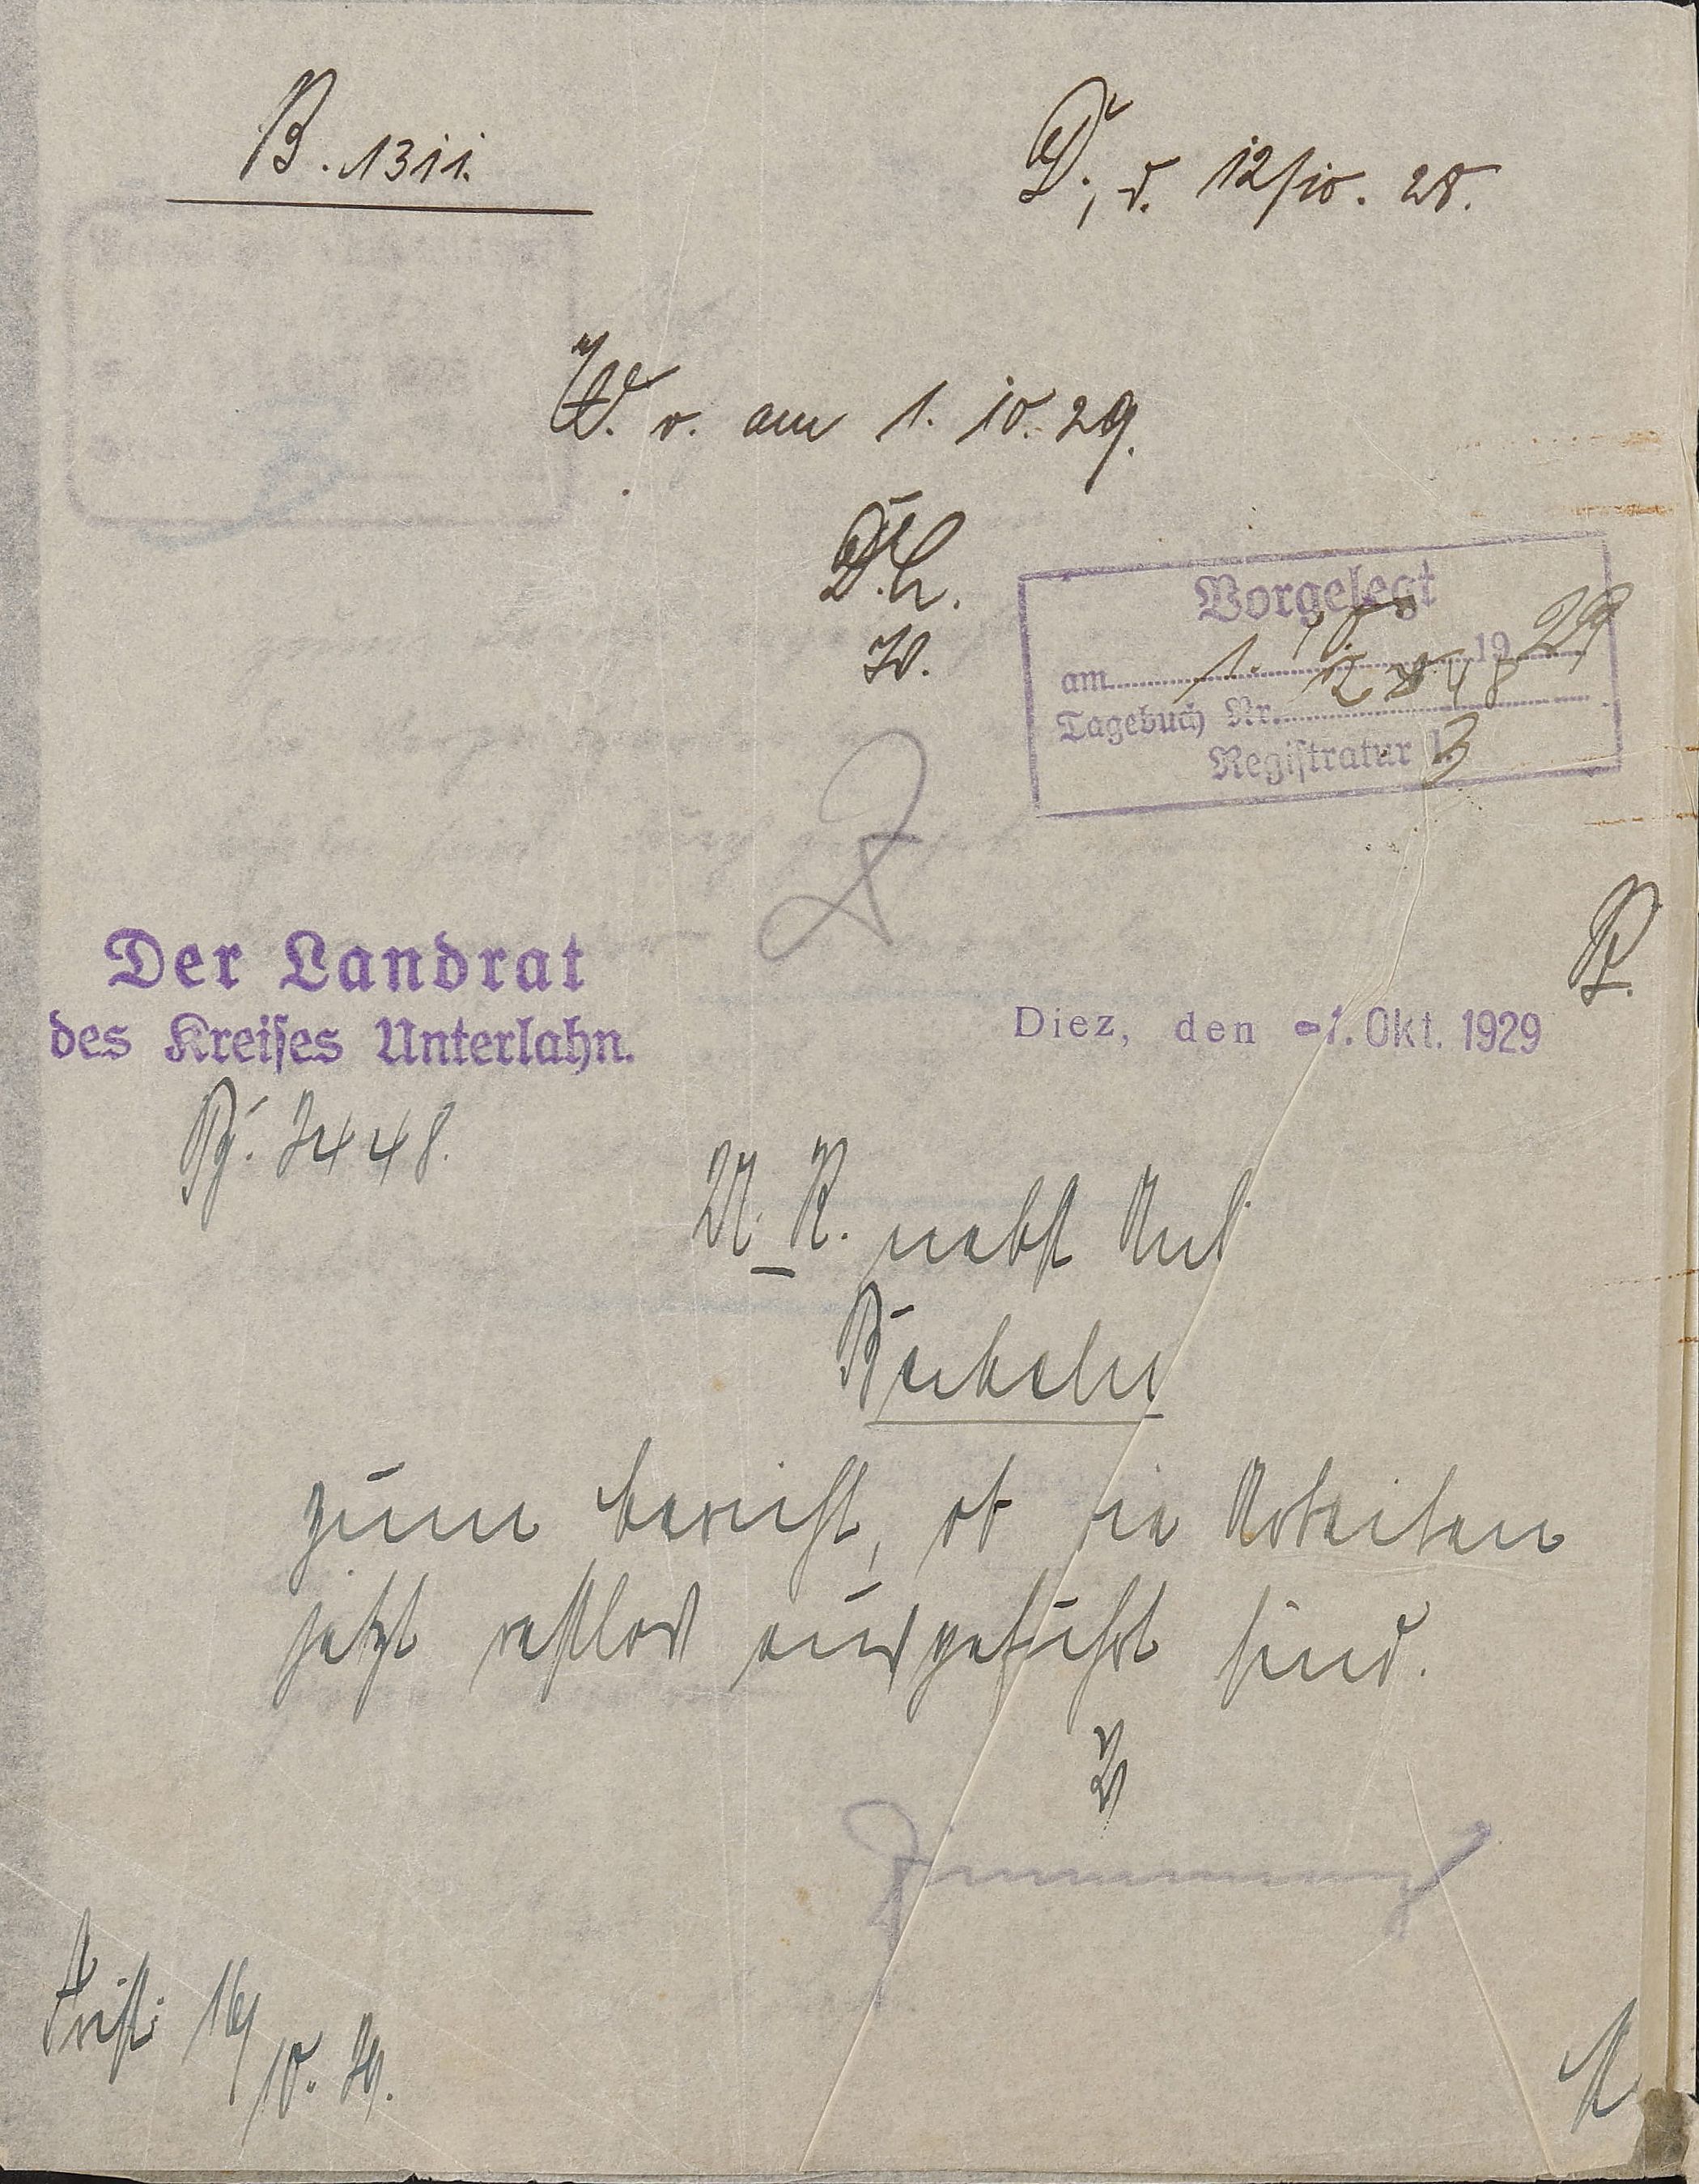 B. 1311.
D., d. 12/10. 28.
W. v. am 1. 10. 29.
D. L.
Vorgelegt
am 1. 10 19 29
Tagebuch Nr.
Registratur
Der Landrat
des Kreises Unterlahn.
Diez, den -1. Okt. 1929
448.
U. R. nebst Anl
zum Bericht, ob die Arbeiten
jetzt restlos ausgeführt sind.
Frist: 16/10. 29.